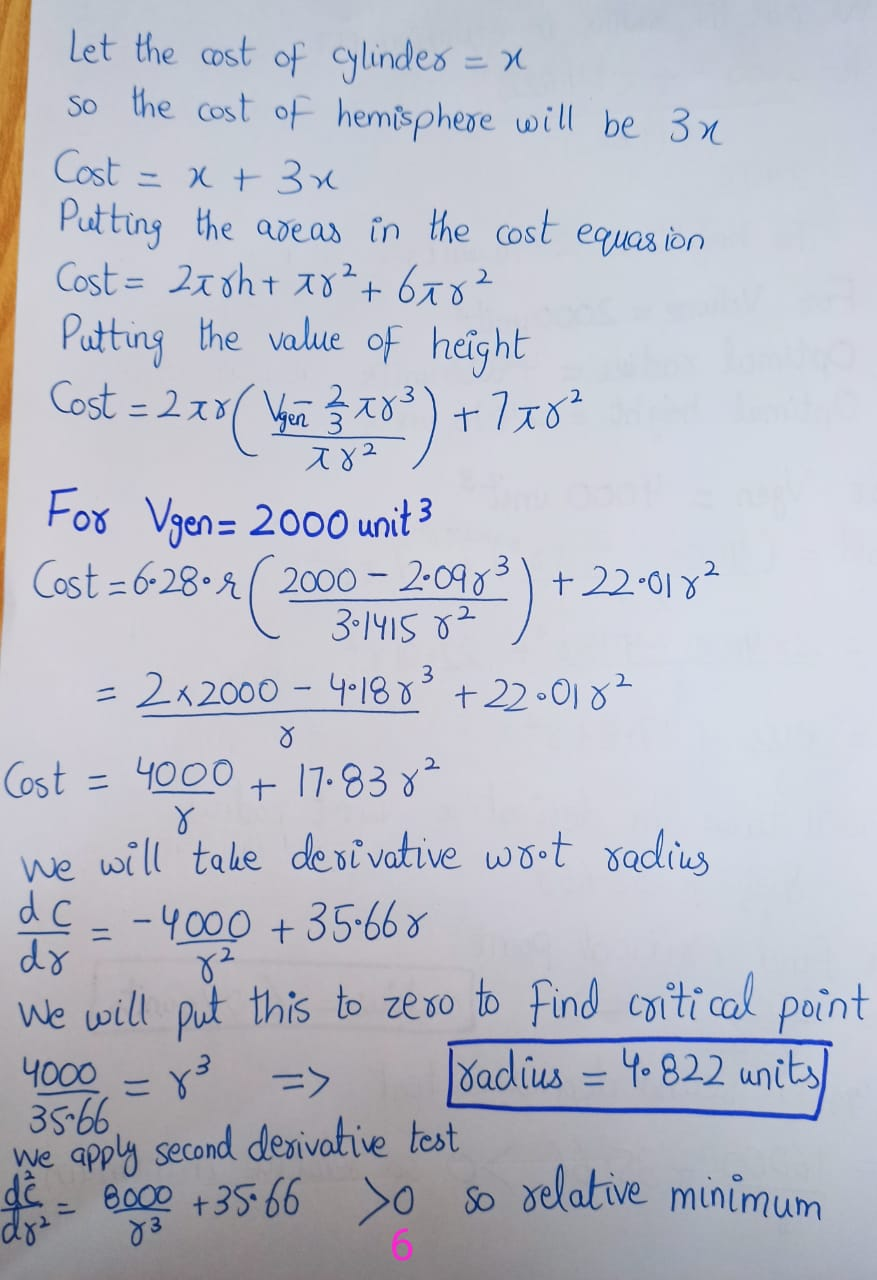 Let the cost of cylinder = x
so the cost of hemisphere will be 3x
Cost = x + 3x
Putting the areas in the cost equasion
Cost = 2πrh + πr² + 6πr²
Putting the value of height
Cost = 2πr( (Vgen - 2/3 πr³) / πr² ) + 7πr²
For Vgen = 2000 unit³
Cost = 6.28.r( (2000 - 2.09r³) / 3.1415 r² ) + 22.01r²
= (2x2000 - 4.18r³) / r + 22.01r²
Cost = 4000/r + 17.83r²
We will take derivative w.r.t radius
dC/dr = -4000/r² + 35.66r
We will put this to zero to find critical point
4000/35.66 = r³ => radius = 4.822 units
We apply second derivative test
d²c/dr² = 8000/r³ + 35.66 >0 so relative minimum
6